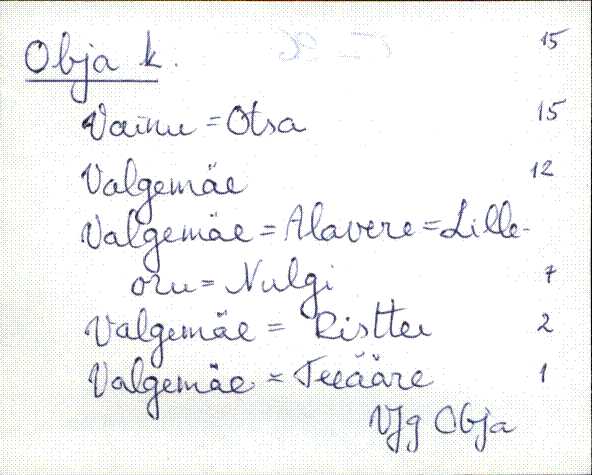 Obja k. 15
Vainu = Otsa 15
Valgemäe 12
Valgemäe = Alavere = Lille-
oru = Nulgi 7
Valgemäe = Ristteu 2
Valgemäe = Teeääre 1
Vjg Obja